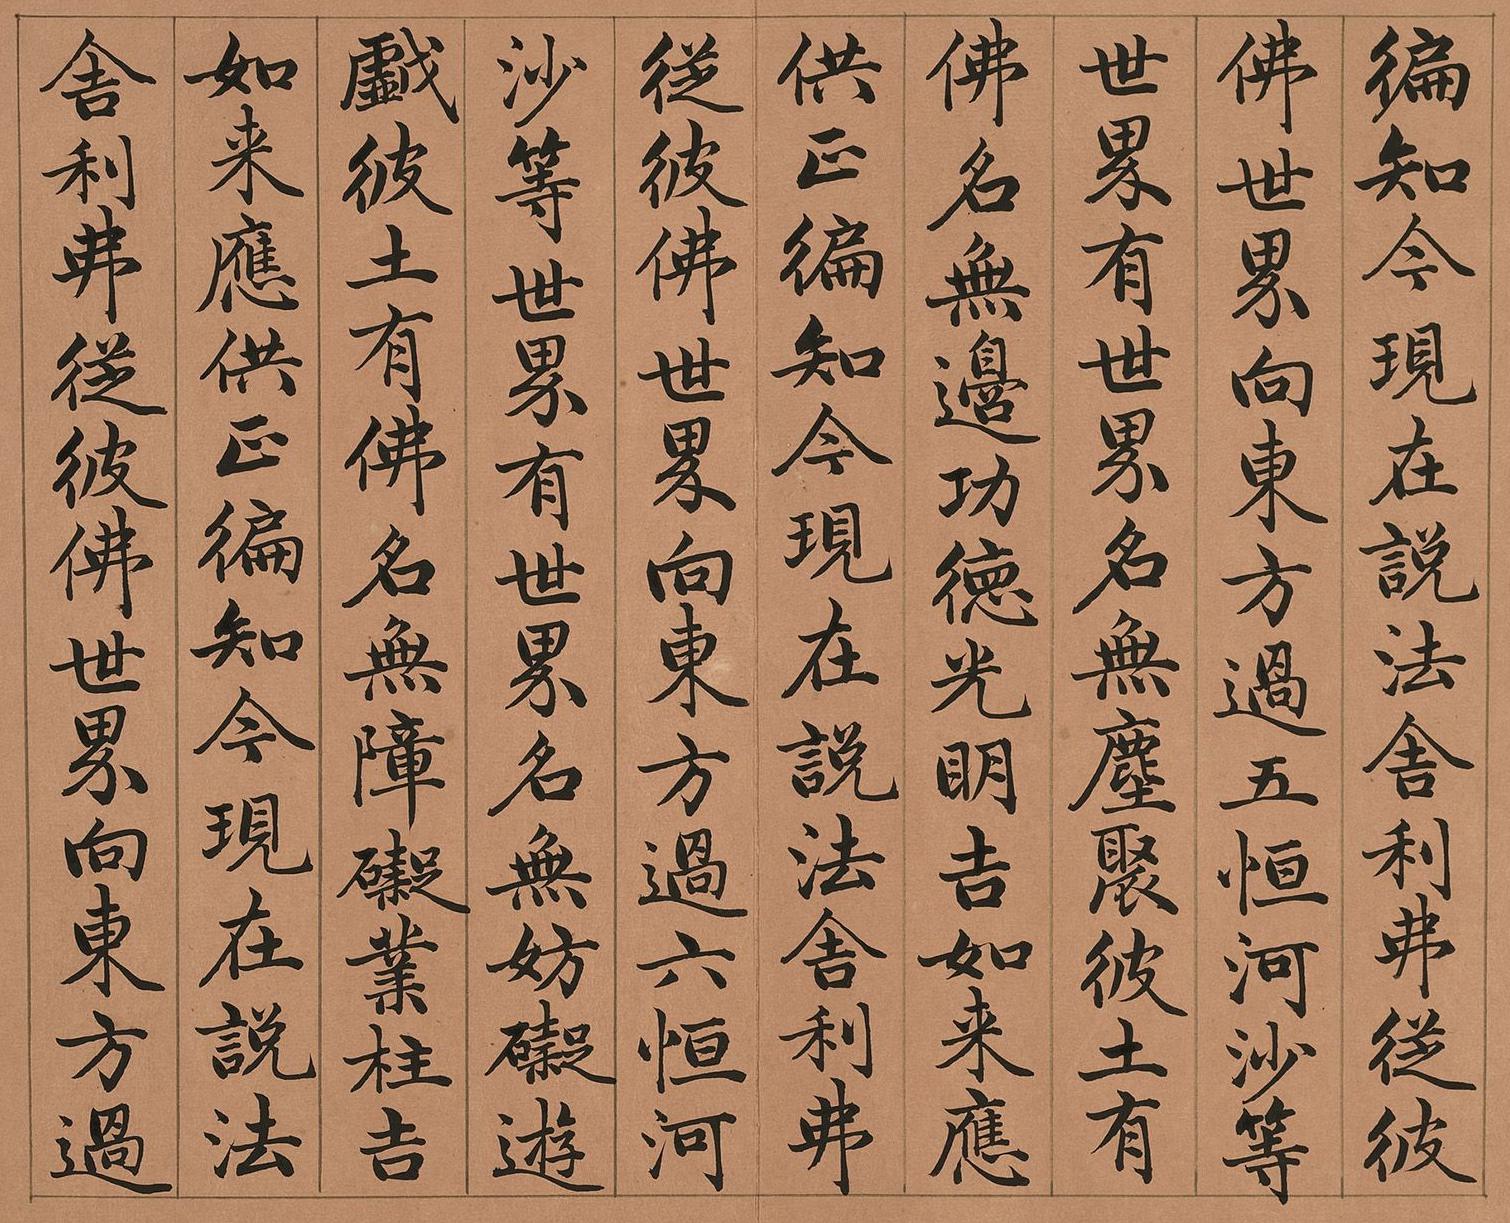 徧知今現在説法舎利弗從彼
佛世界向東方過五恒河沙等
世界有世界名無塵聚彼土有
佛名無邊功徳光明吉如来應
供正徧知今現在説法舎利弗
從彼佛世界向東方過六恒河
沙等世界有世界名無妨礙遊
戯彼土有佛名無障礙業柱吉
如来應供正徧知今現在説法
舎利弗從彼佛世界向東方過